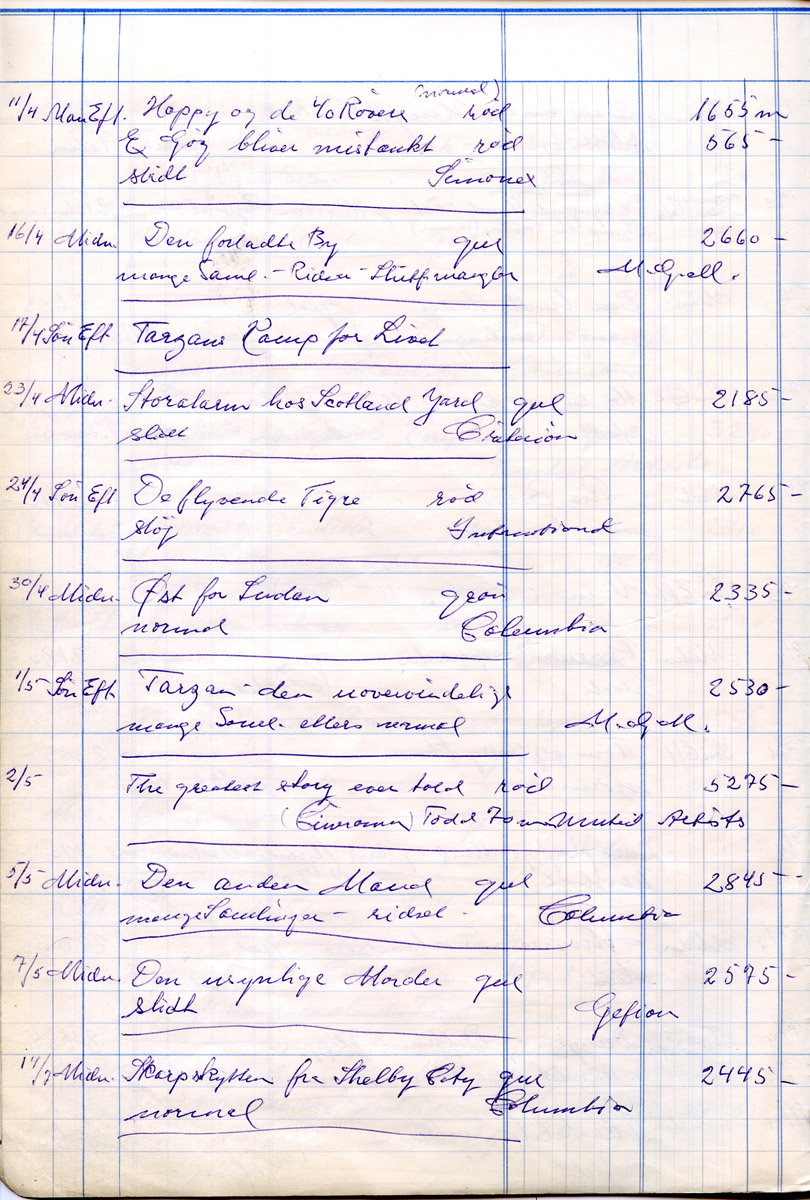 (normal)
11/4 Man Eft. Hoppy og de 40 Røvere rød 1655 m
& Gøg bliver mistænkt rød 565 -
slidt
16/4 Midn. Den forladte By gul 2660 -
mange Saml. - Ridser - M.G.M.
17/4 Søn Eft Tarzans Kamp for Livet
23/4 Midn. Storalarm hos Scotland Yard gul 2185 -
slidt Criterion
24/4 Søn Eft De flyvende Tigre rød 2765 -
støj International
30/4 Midn. Øst for Sudan grøn 2335 -
normal Columbia
1/5 Søn Eft. Tarzan den uovervindelige 2530 -
mange Saml. ellers normal M.G.M.
2/5 The greatest story ever told rød 5275 -
(Cinerama) Todd 70 mm United Artists
5/5 Midn. Den anden Mand gul 2845 -
mange Samlinger - ridset - Columbia
7/5 Midn. Den usynlige Morder gul 2575 -
slidt Gefion
Midn. Skarpskytten fra Shelby City gul 2445 -
normal Columbia